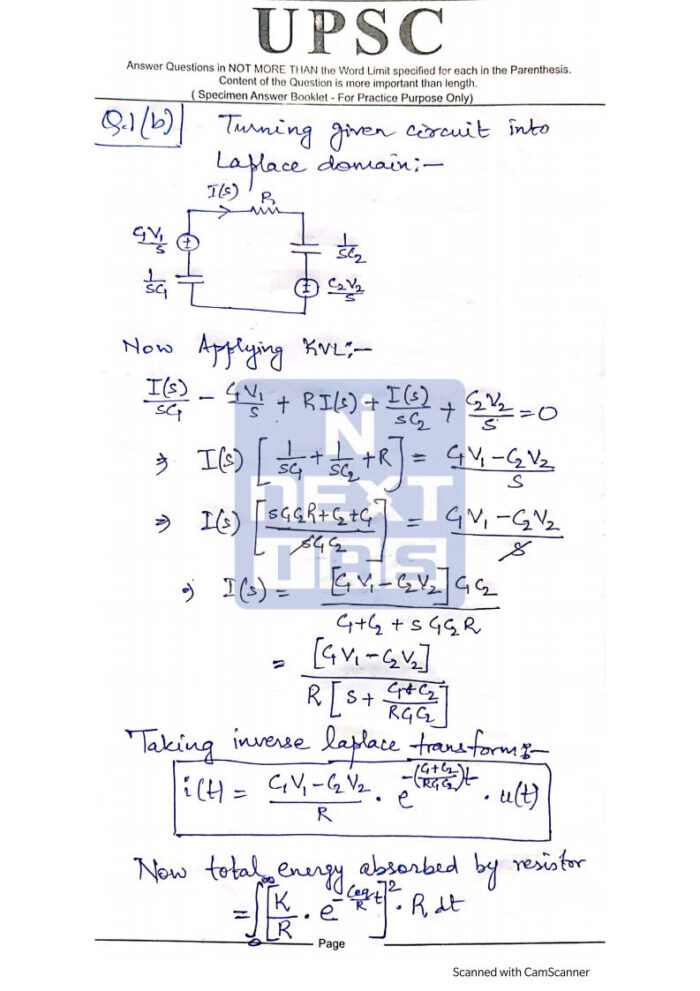 UPSC
Answer Questions in NOT MORE THAN the Word Limit specified for each in the Parenthesis.
Content of the Question is more important than length.
( Specimen Answer Booklet - For Practice Purpose Only)
Q.1(b) Turning given circuit into
Laplace domain:–
I(s) R
C₁V₁/s
1/sC₂
1/sC₁
C₂V₂/s
Now Applying KVL:–
I(s)/sC₁ - C₁V₁/s + RI(s) + I(s)/sC₂ + C₂V₂/s = 0
⇒ I(s) [1/sC₁ + 1/sC₂ + R] = C₁V₁ - C₂V₂/s
⇒ I(s) [sC₁C₂R + C₂ + C₁/sC₁C₂] = C₁V₁ - C₂V₂/s
⇒ I(s) = [C₁V₁ - C₂V₂] C₁C₂/C₁+C₂ + sC₁C₂R
= [C₁V₁ - C₂V₂]/R[s + C₁+C₂/RC₁C₂]
Taking inverse laplace transform:–
i(t) = C₁V₁ - C₂V₂/R · e^-(C₁+C₂/RC₁C₂)t · u(t)
Now total energy absorbed by resistor
= ∫₀^∞ [K/R · e^-(Ceq/R)t]² · R dt
Page
NEXT IAS
Scanned with CamScanner